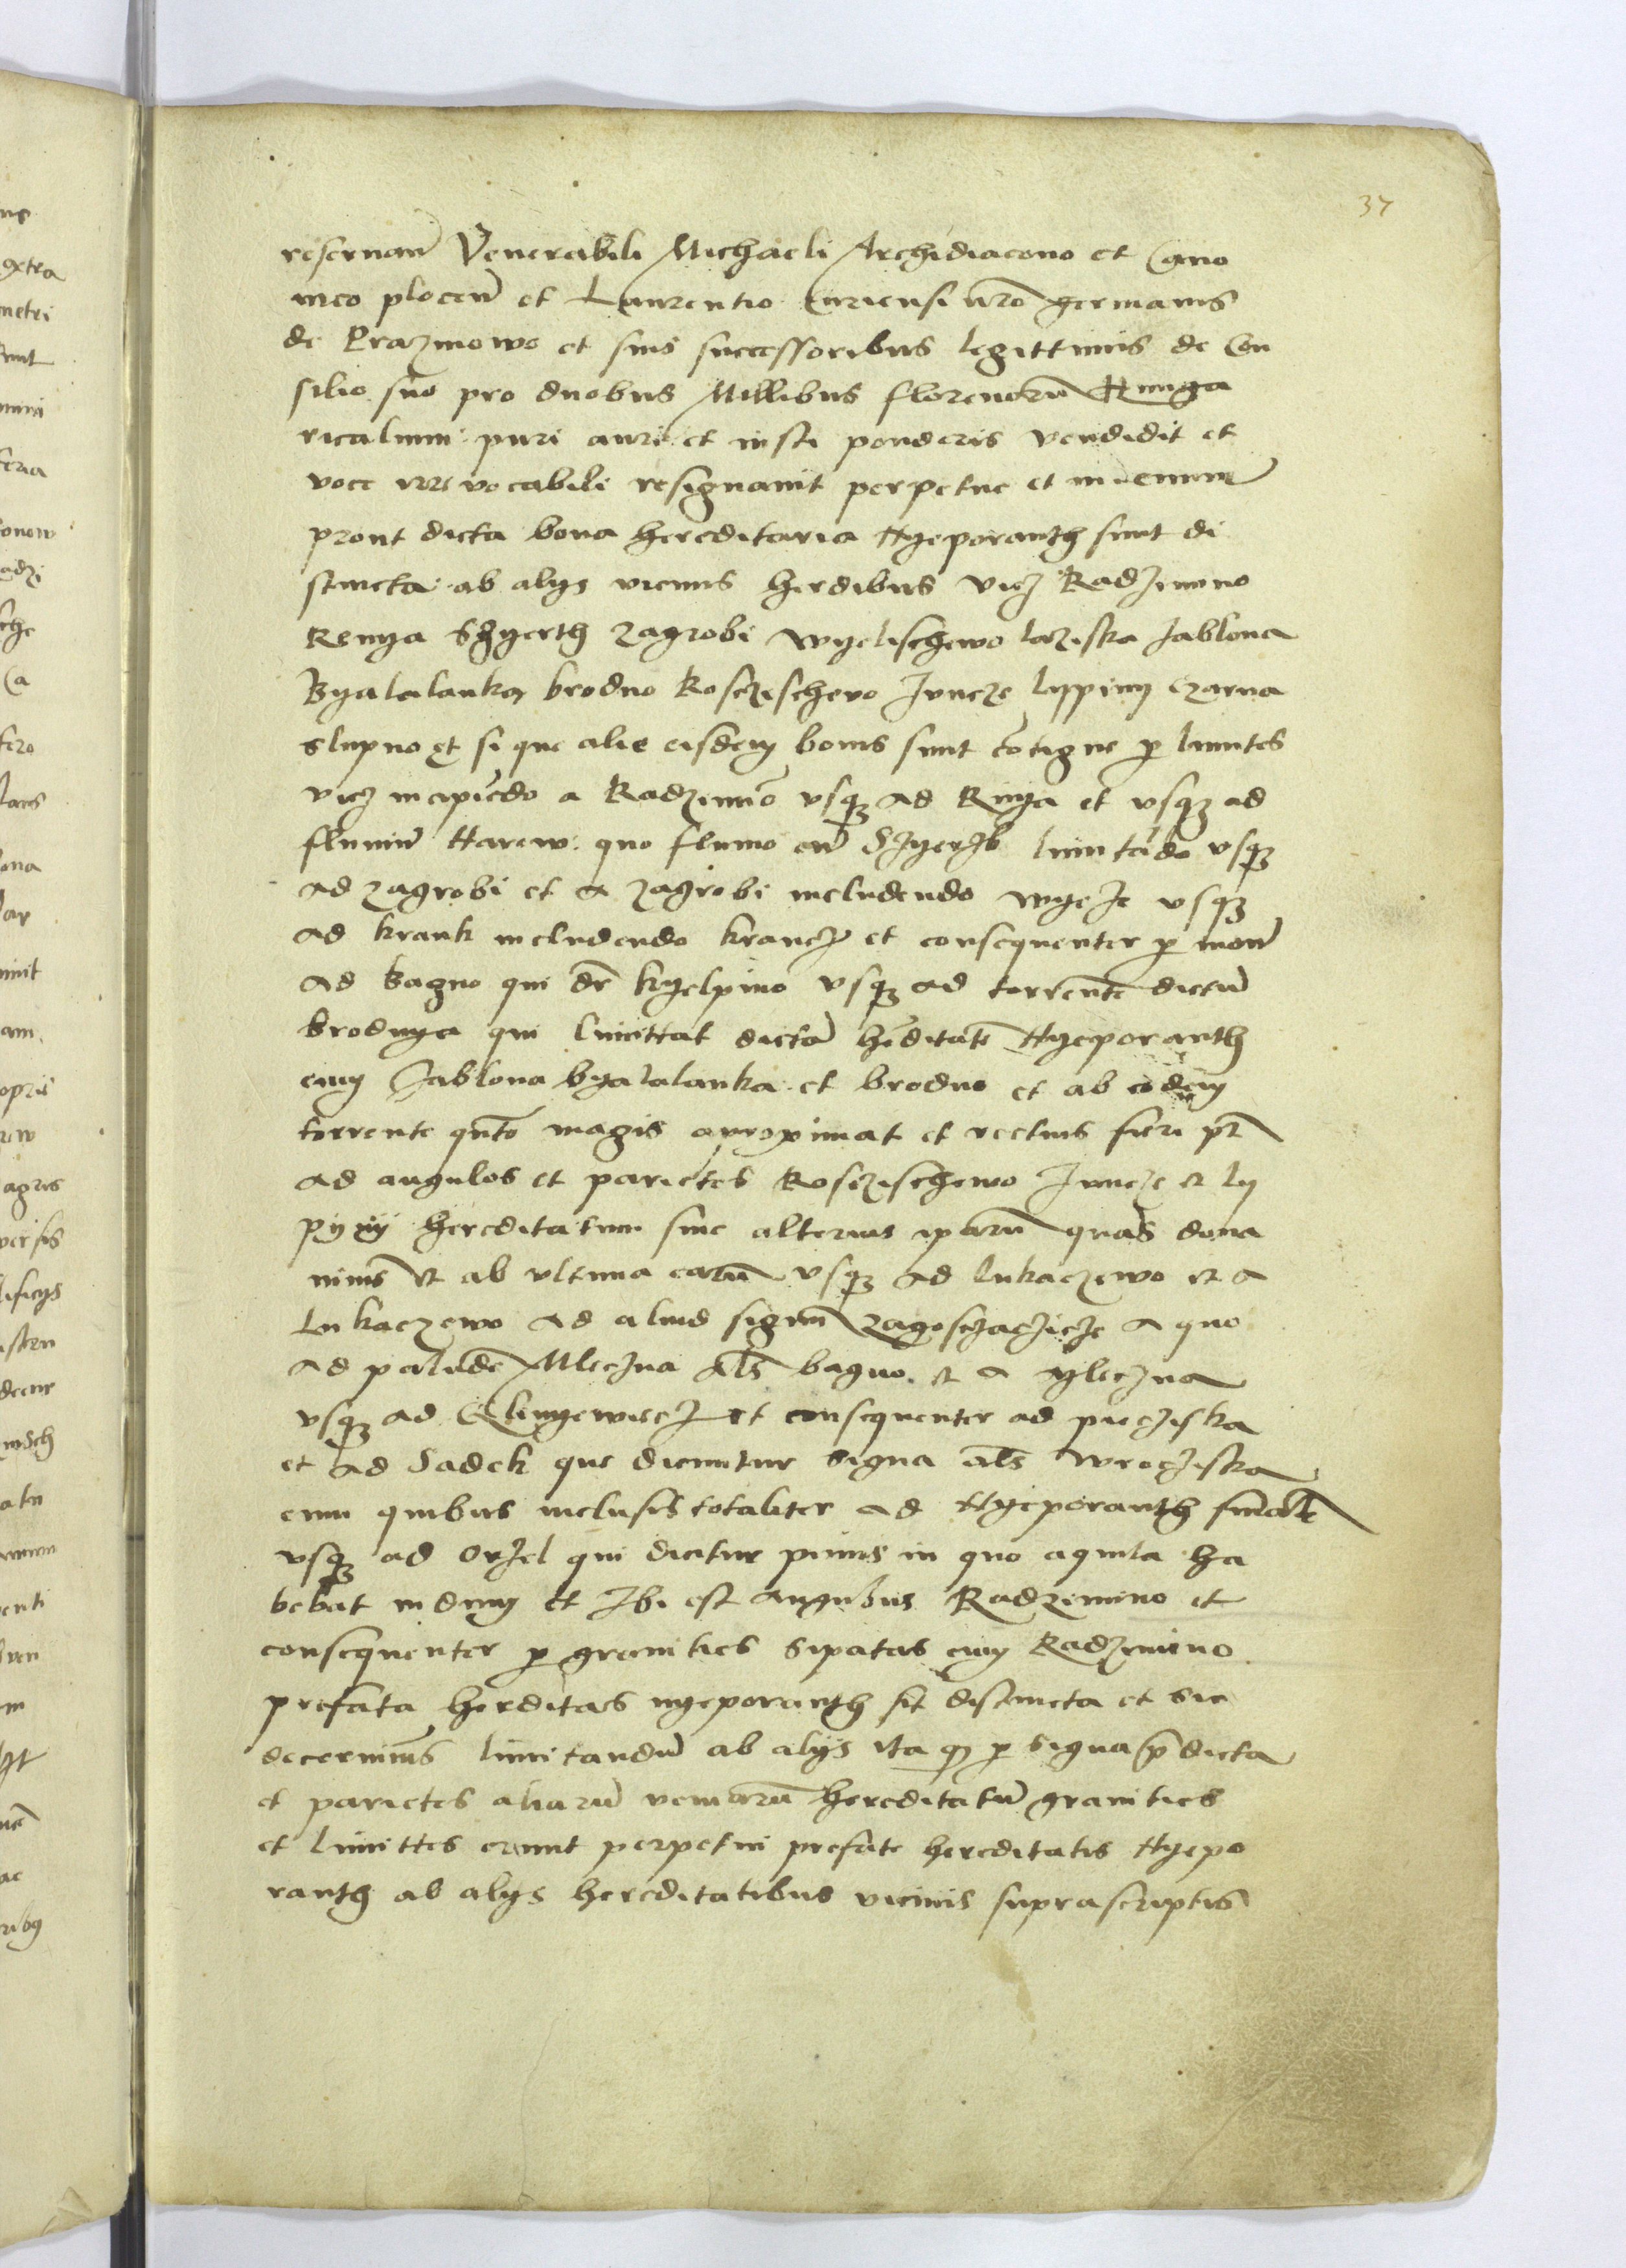 37
reservan̄ Venerabili Michaeli Archidiacono et Cano
nico plocen̄ et Laurentio Curiensi nr̄o germanis
de Prazmowo et suis successoribus legittimis de Con
silio suo pro duobus Millibus florenorū Hunga
ricalium puri auri et iusti ponderis vendidit et
voce irrevocabili resignavit perpetue et in evum
prout dicta bona hereditaria Nyeporanth sunt di
stincta ab alys vicinis herdibus vicz Radzimino
Renya Szyerth Zagrobi Wyelischewo laziska Jablona
Byalalanka brodno Kosczeschevo Juncze lyppiny Czarna
slupno et si que alie eisdem bonis sunt cōtigue p limites
vicz incipiēdo a Radzimīo vsqz ad Rinya et vsqz ad
fluuiū Narew quo fluuio cū Szyerzb limitādo vsqz
ad zagrobi et a zagrobi includendo wyeze vsqz
ad krank includendo krancz et consequenter p mon̄
ad bagno qui dr̄ kyelpino vsqz ad torrentē dictū
brodnya qui limittat dictā hēditatē Nyeporanth
cum Jablona byalalanka et brodno et ab eodem
torrente qn̄to magis aproximat et rectius fieri pt̄
ad angulos et parietes Kosczeschewo Juncze et ly
pyny hereditatum siue alterius iparū quas dona
nimus et ab vltima earū vsqz ad lukaczewo et a
Lukaczewo ad aliud signū zagosczaczicze a quo
ad paludē Mleczna al̄s bagno et a Mleczna
vsqz ad Glinyewiecz et consequenter ad piecziska
et ad Sadek que dicuntur signa al̄s wrocziska
cum quibus inclusis totaliter ad Nyeporanth
vsqz ad orzel qui dicitur pinus in quo aquila ha
bebat nidum et Ibi est angulus Radzimino et
consequenter p granities sipatas cum Radzimino
prefata herditas nyeporanth sit distincta et sic
decernimus limitandū ab alijs ita qz p signa p̄dicta
et parietes aliarū vicinarū hereditatū granities
et limittes erunt perpetui prefate hereditatis Nyepo
ranth ab alys hereditatibus vicinis suprascriptis